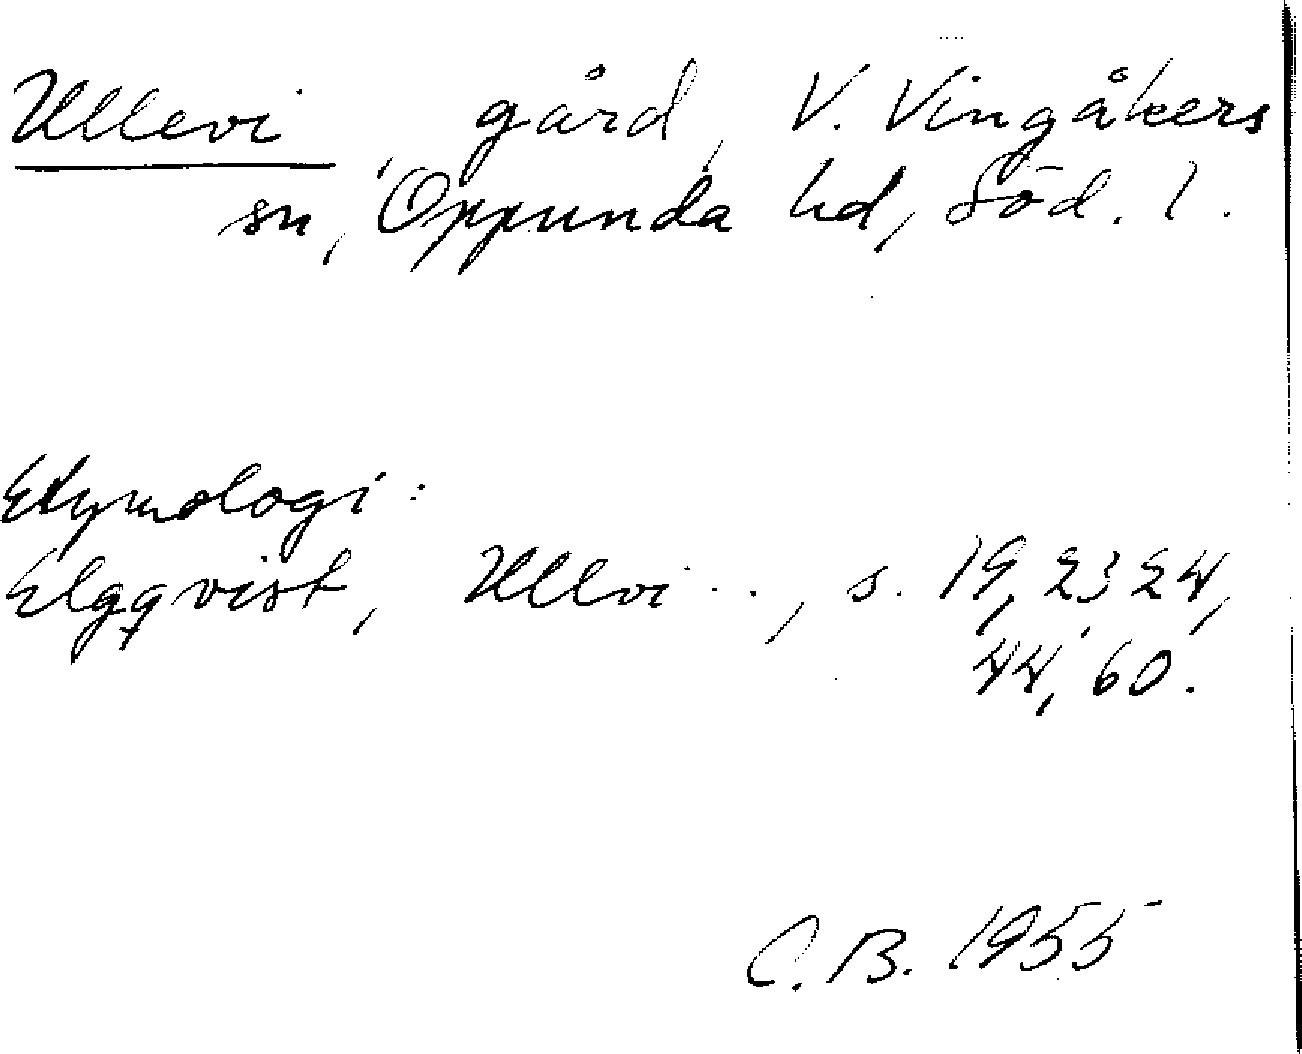 Ullevi, gård, V. Vingåkers
sn, Oppunda hd, Söd. l.
Etymologi:
Elgqvist, Ullvi..., s. 19, 23, 24,
44, 60.
C.B. 1955